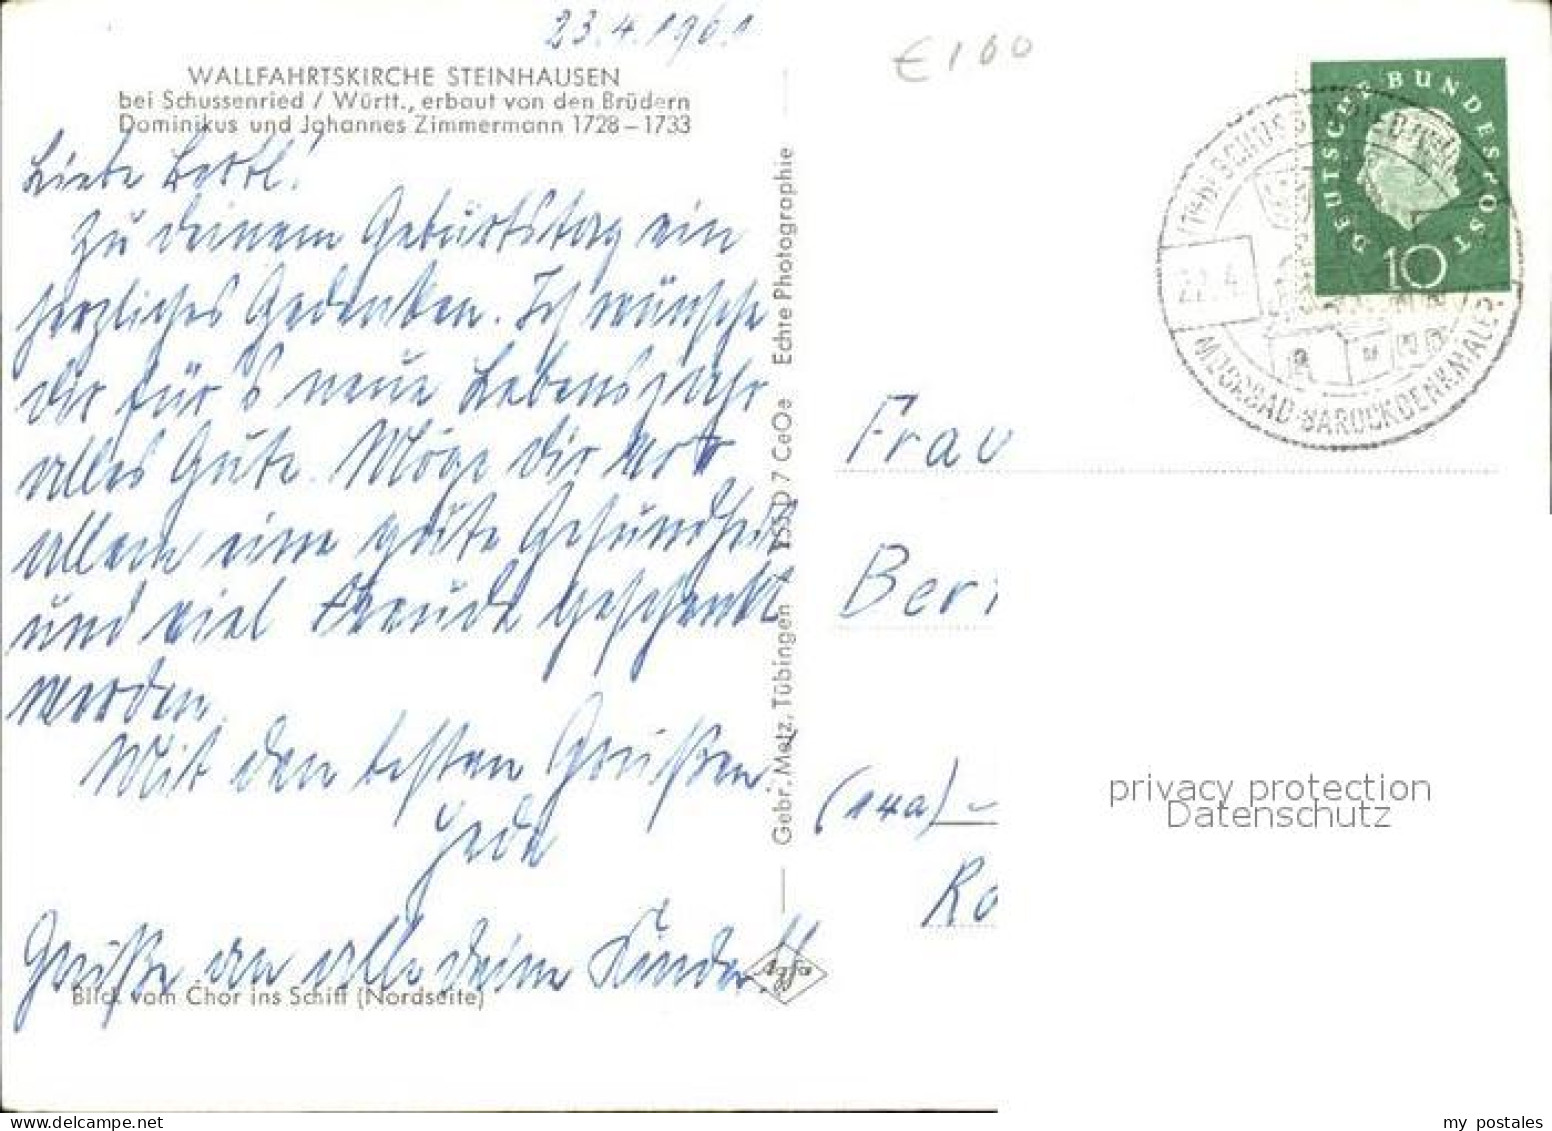 23.4.1961
WALLFAHRTSKIRCHE STEINHAUSEN
bei Schussenried / Württ., erbaut von den Brüdern
Dominikus und Johannes Zimmermann 1728–1733
Liebe Bertl!
Zu deinem Geburtstag ein
herzliches Gedenken. Ich wünsche
dir für's neue Lebensjahr
alles Gute. Möge dir vor
allem eine gute Gesundheit
und viel Freude geschenkt
werden.
Mit den besten Grüßen
Heda
Grüße an alle deine Kinder!
Blick vom Chor ins Schiff (Nordseite)
Gebr. Metz, Tübingen
D 7 CeOe
Echte Photographie
Agfa
€100
DEUTSCHE BUNDESPOST
10
22.4.
MOORBAD-BAROCKDENKMALE
Frau
Ber
(14a)
Ro
privacy protection
Datenschutz
my postales